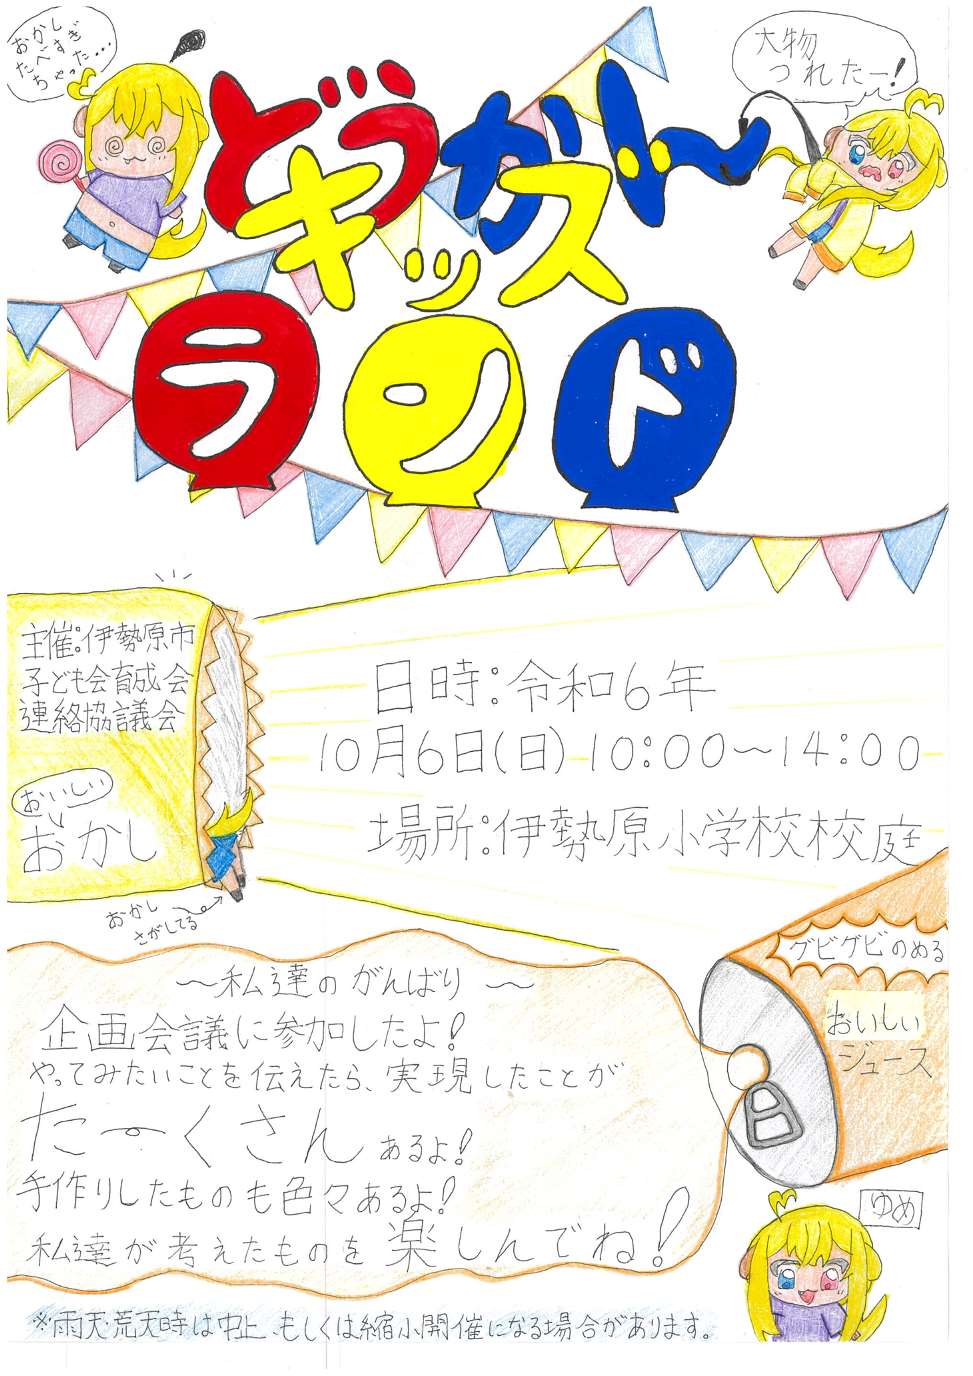 おかし
たべすぎ
ちゃった…
大物
つれたー!
どうかん
キッズ
ランド
主催:伊勢原市
子ども会育成会
連絡協議会
おいしい
おかし
おかし
さがしてる
日時:令和6年
10月6日(日) 10:00〜14:00
場所:伊勢原小学校校庭
グビグビのめる
おいしい
ジュース
〜私達のがんばり〜
企画会議に参加したよ!
やってみたいことを伝えたら、実現したことが
たーくさんあるよ!
手作りしたものも色々あるよ!
私達が考えたものを楽しんでね!
ゆめ
※雨天・荒天時は中止、もしくは縮小開催になる場合があります。